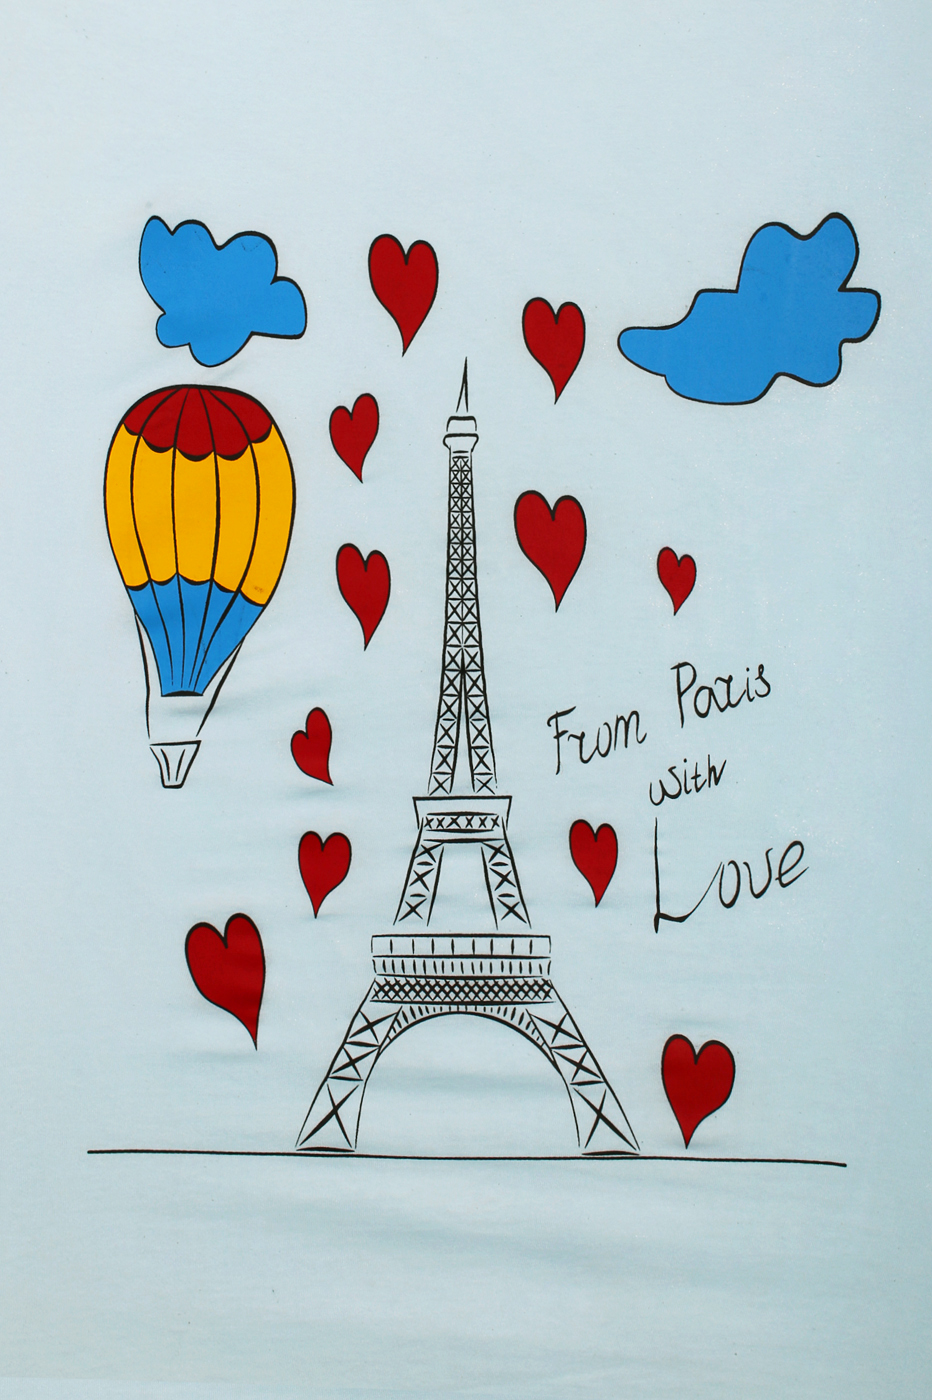 From Paris
with
Love